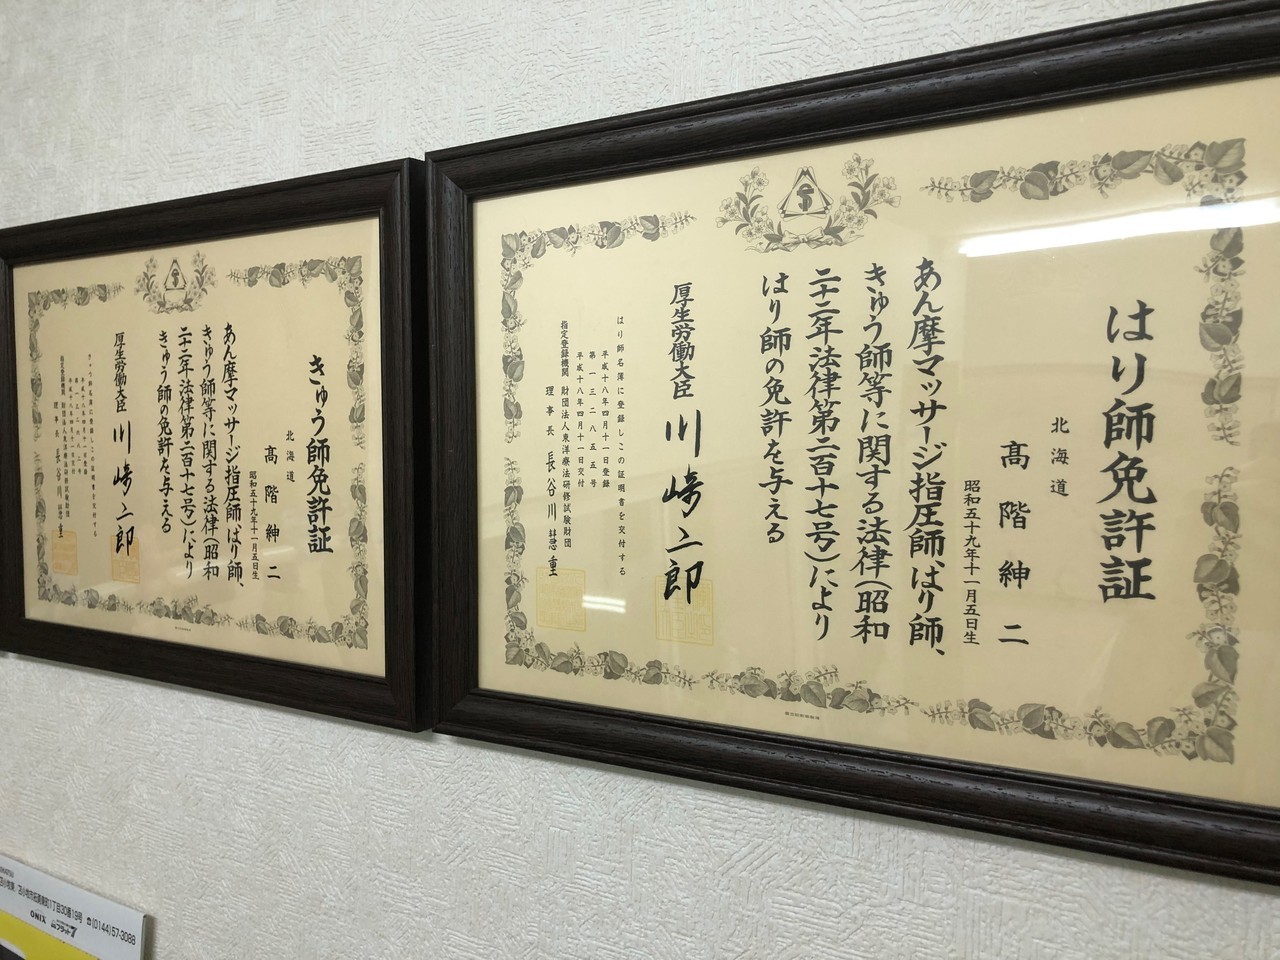 はり師免許証
北海道
髙階紳二
昭和五十九年十一月五日生
あん摩マッサージ指圧師、はり師、
きゅう師等に関する法律(昭和
二十二年法律第二百十七号)により
はり師の免許を与える
厚生労働大臣 川崎二郎
はり師名簿に登録しこの証明書を交付する
平成十八年四月十一日登録
第一三二八五五号
平成十八年四月十一日交付
指定登録機関 財団法人東洋療法研修試験財団
理事長 長谷川慧重
きゅう師免許証
北海道
髙階紳二
昭和五十九年十一月五日生
あん摩マッサージ指圧師、はり師、
きゅう師等に関する法律(昭和
二十二年法律第二百十七号)により
きゅう師の免許を与える
厚生労働大臣 川崎二郎
きゅう師名簿に登録しこの証明書を交付する
平成十八年四月十一日登録
平成十八年四月十一日交付
指定登録機関 財団法人東洋療法研修試験財団
理事長 長谷川慧重
1丁目30番19号 ☎(0144)57-3088
ONIX